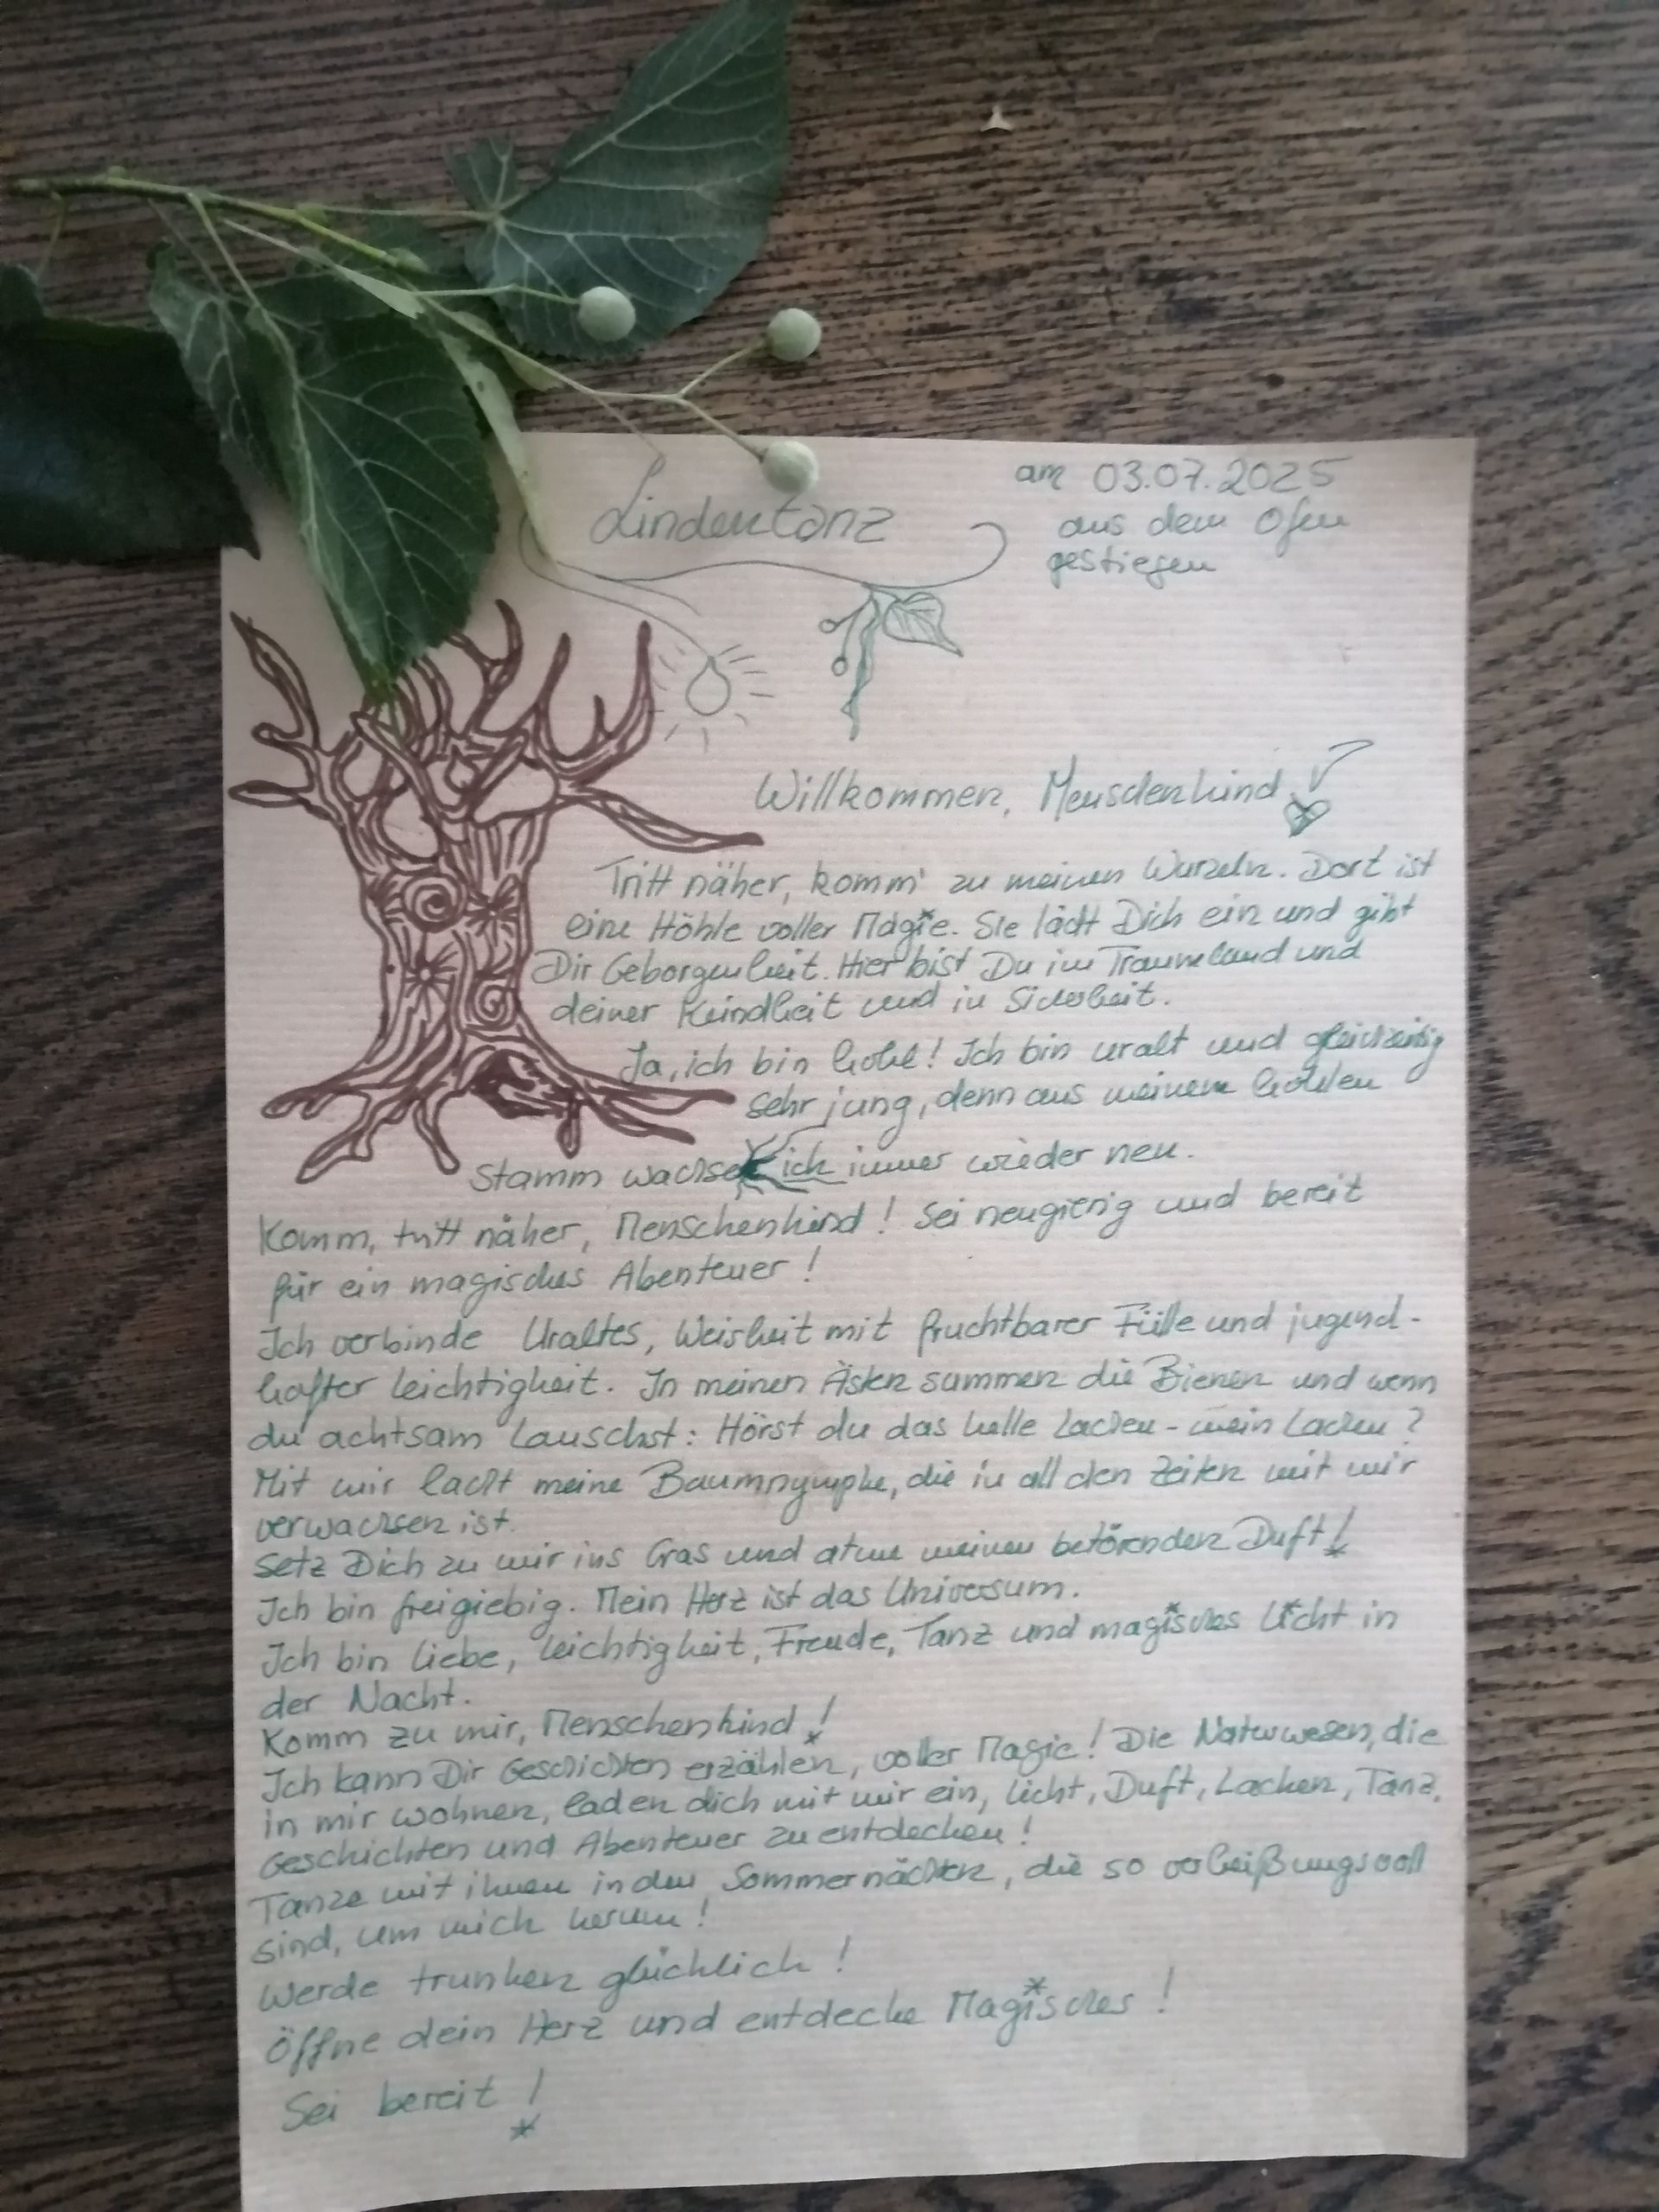 Lindentanz
am 03.07.2025
aus dem Ofen
gestiegen
Willkommen, Menschenkind!
Tritt näher, komm' zu meinen Wurzeln. Dort ist
eine Höhle voller Magie. Sie lädt Dich ein und gibt
Dir Geborgenheit. Hier bist Du im Traumland und
deiner Kindheit und in Sicherheit.
Ja, ich bin hohl! Ich bin uralt und gleichzeitig
sehr jung, denn aus meinem hohlen
Stamm wachse ich immer wieder neu.
Komm, tritt näher, Menschenkind! Sei neugierig und bereit
für ein magisches Abenteuer!
Ich verbinde Uraltes, Weisheit mit fruchtbarer Fülle und jugend-
hafter Leichtigkeit. In meinen Ästen summen die Bienen und wenn
du achtsam lauschst: Hörst du das helle Lachen - mein Lachen?
Mit mir lacht meine Baumnymphe, die in all den Zeiten mit mir
verwachsen ist.
Setz Dich zu mir ins Gras und atme meinen betörenden Duft!
Ich bin freigiebig. Mein Herz ist das Universum.
Ich bin Liebe, Leichtigkeit, Freude, Tanz und magisches Licht in
der Nacht.
Komm zu mir, Menschenkind!
Ich kann Dir Geschichten erzählen, voller Magie! Die Naturwesen, die
in mir wohnen, laden dich mit mir ein, Licht, Duft, Lachen, Tanz,
Geschichten und Abenteuer zu entdecken!
Tanze mit ihnen in den Sommernächten, die so verheißungsvoll
sind, um mich herum!
Werde trunken glücklich!
Öffne dein Herz und entdecke Magisches!
Sei bereit!